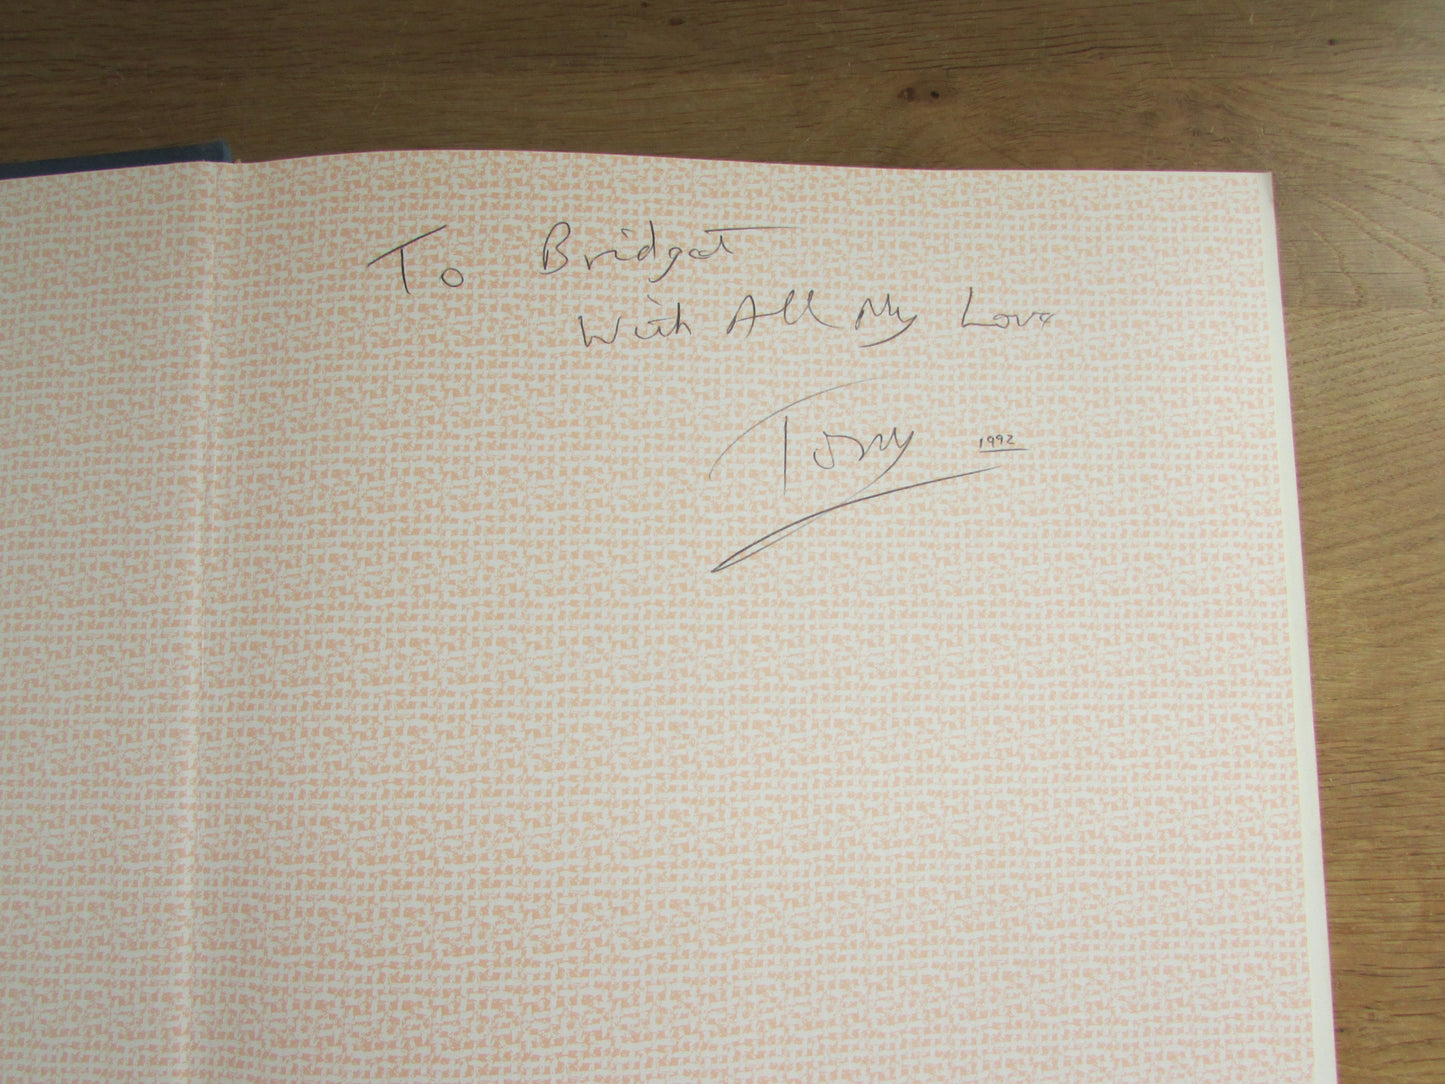 To Bridget
With All My Love
Tony 1992